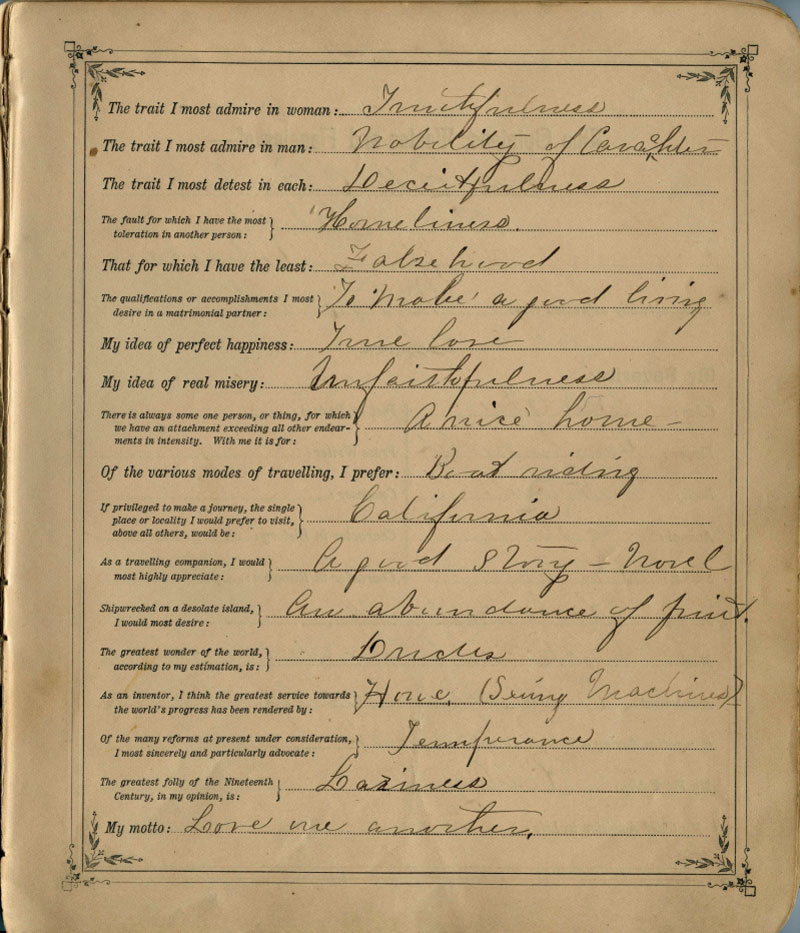 The trait I most admire in woman: Truthfulness
The trait I most admire in man: Nobility of Carachter
The trait I most detest in each: Deceitfulness
The fault for which I have the most
toleration in another person: Homeliness.
That for which I have the least: Falsehood
The qualifications or accomplishments I most
desire in a matrimonial partner: To 'make' a good living
My idea of perfect happiness: True love
My idea of real misery: Unfaithfulness
There is always some one person, or thing, for which
we have an attachment exceeding all other endear-
ments in intensity. With me it is for: A nice home –
Of the various modes of travelling, I prefer: Boat riding
If privileged to make a journey, the single
place or locality I would prefer to visit,
above all others, would be: California
As a travelling companion, I would
most highly appreciate: A good story – Novel
Shipwrecked on a desolate island,
I would most desire: An abundance of fruit.
The greatest wonder of the world,
according to my estimation, is: Dudes
As an inventor, I think the greatest service towards
the world's progress has been rendered by: Howe. (Sewing Machines)
Of the many reforms at present under consideration,
I most sincerely and particularly advocate: Temperance
The greatest folly of the Nineteenth
Century, in my opinion, is: Laziness
My motto: Love one another.